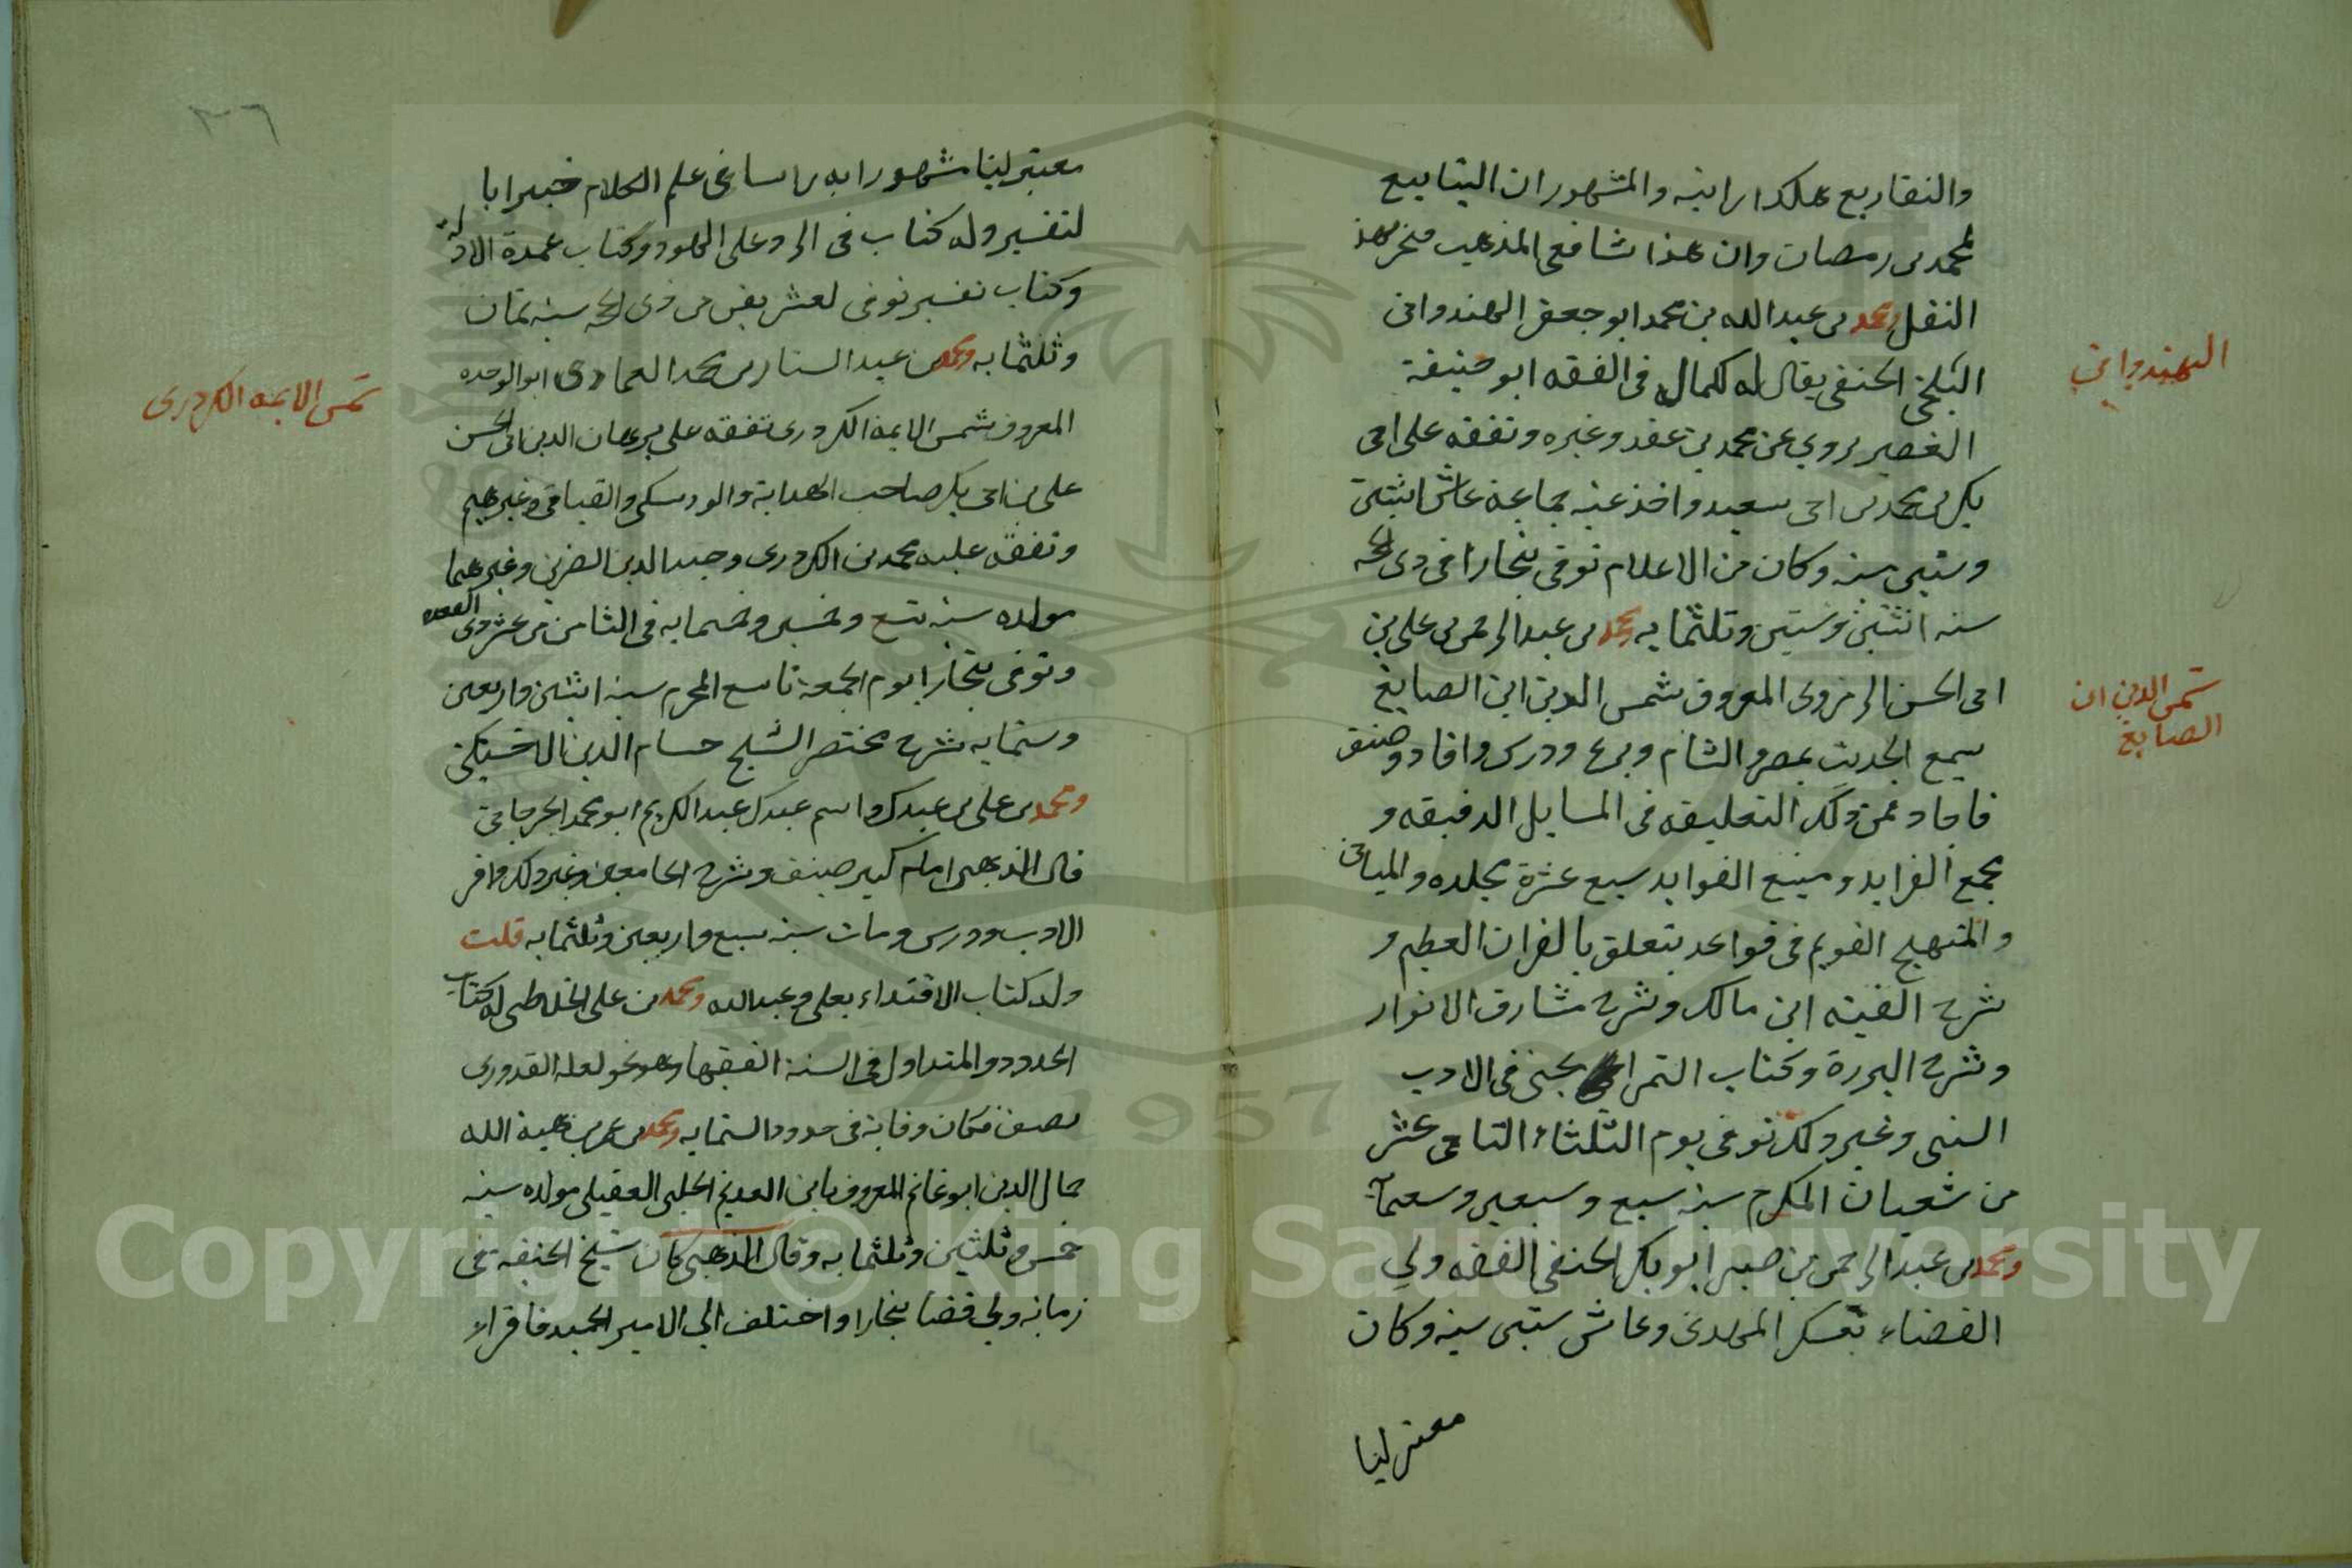 والتفاريع هكذا رايته والمشهور ان الينابيع
لمحمد بن رمضان وان هذا شافعي المذهب فتحرر هذا
النقل ومحمد بن عبدالله بن محمد ابو جعفر الهندواني
البلخي الحنفي يقال له لكماله في الفقه ابو حنيفة
الصغير يروي عن محمد بن عقد وغيره وتفقه على ابي
بكر بن محمد بن ابي سعيد واخذ عنه جماعة عاش اثنتين
وستين سنه وكان من الاعلام توفي ببخارا في ذي الحجه
سنه اثنتين وستين وثلثمايه ومحمد بن عبدالرحمن بن علي بن
ابي الحسن الزمردي المعروف بشمس الدين ابن الصايغ
سمع الحديث بمصر والشام وبرع ودرس وافاد وصنف
فاجاد فمن ذلك التعليقه في المسايل الدقيقه و
مجمع الفرايد ومنبع الفوايد سبع عشرة مجلده والمباني
والمنهج القويم في قواعد يتعلق بالقران العظيم و
شرح الفيته ابن مالك وشرح مشارق الانوار
وشرح البردة وكتاب الثمر الجني في الادب
السني وغير ذلك توفي يوم الثلثاء الثاني عشر
من شعبان المكرم سنه سبع وسبعين وسبعمايه
ومحمد بن عبدالرحمن بن صبر ابو بكر الحنفي الفقه ولي
القضاء بعسكر المهدي وعاش ستين سنه وكان
معتزليا
الهندواني
شمس الدين ابن
الصايغ
٣٦
معتزليا مشهورا به راسا في علم الكلام خبيرا با
لتفسير وله كتاب في الرد على اليهود وكتاب عمدة الادله
وكتاب تفسير توفي لعشر بقين من ذي الحجه سنه ثمان
وثلثمايه ومحمد بن عبد الستار بن محمد العمادي ابو الوحده
المعروف بشمس الايمه الكردري تفقه على برهان الدين ابي الحسن
علي بن ابي بكر صاحب الهداية والورسكي والعتابي وغيرهم
وتفقه عليه محمد بن الكردري وحميد الدين الضرير وغيرهما
مولده سنه تسع وخمسين وخمسمايه في الثامن من عشر ذي القعده
وتوفي ببخارا يوم الجمعة تاسع المحرم سنه اثنتين واربعين
وستمايه شرح مختصر الشيخ حسام الدين الاخسيكتي
ومحمد بن علي بن عبدك واسم عبدك عبدالكريم ابو محمد الجرجاني
قال الذهبي امام كبير صنف وشرح الجامعين وغير ذلك واقر
الادب ودرس ومات سنه سبع واربعين وثلثمايه قلت
وله كتاب الاقتداء بعلي وعبدالله ومحمد بن علي الخلاطي له كتاب
الحدود والمتداول في السنة الفقهاء وهو نحو لعله القدوري
نصف فكان وفاته في حدود الستمايه ومحمد بن عمر بن هبة الله
جمال الدين ابو غانم المعروف بابن العديم الحلبي العقيلي مولده سنه
خمس وثلثين وثلثمايه وقال الذهبي كان شيخ الحنفيه في
زمانه ولي قضا بخارا واختلف الي الامير الحميد فاقراه
شمس الايمه الكردري